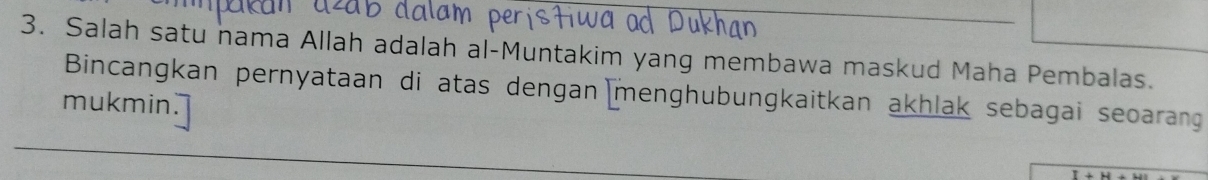 azab dalam peristiwa ad Dukhan
3. Salah satu nama Allah adalah al-Muntakim yang membawa maskud Maha Pembalas.
Bincangkan pernyataan di atas dengan [menghubungkaitkan akhlak sebagai seoarang
mukmin.]